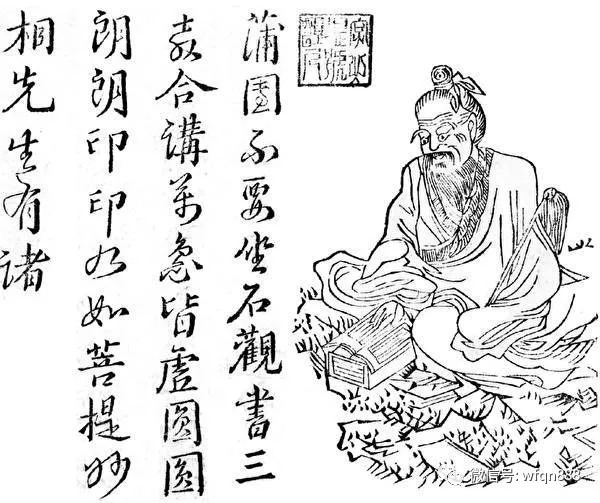 蒲團不要坐石觀書三
教合講萬皆虛圓圓
朗朗印印如菩提妙
相先生有諸
微信号: wfqn888